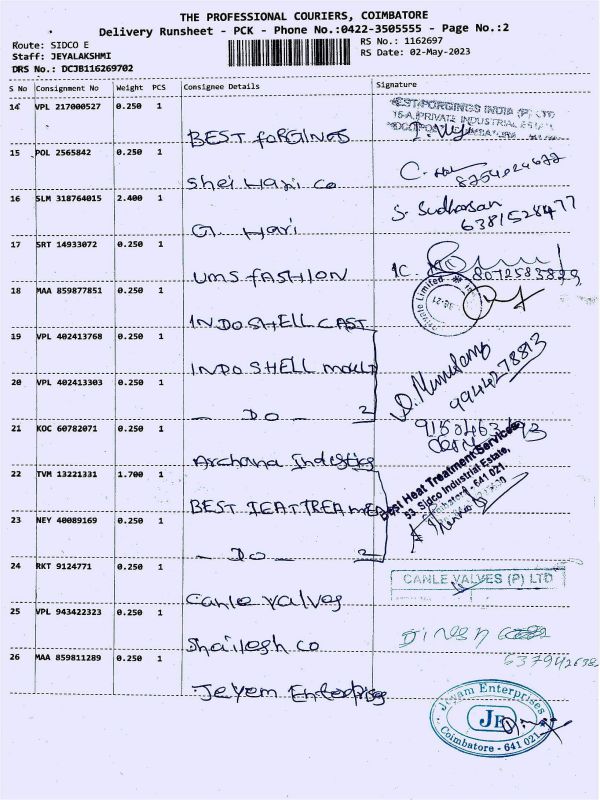 THE PROFESSIONAL COURIERS, COIMBATORE
Delivery Runsheet - PCK - Phone No.:0422-3505555 - Page No.:2
Route: SIDCO E
RS No.: 1162697
Staff: JEYALAKSHMI
RS Date: 02-May-2023
DRS No.: DCJB116269702
S No Consignment No Weight PCS Consignee Details Signature
14 VPL 217000527 0.250 1
BEST FORGINGS INDIA (P) LTD
BEST FORGINGS
15 POL 2565842 0.250 1
Shri Hari Co
16 SLM 318764015 2.400 1
S. Sudharsan
6381528477
G. Hari
17 SRT 14933072 0.250 1
UMS FASHION
8072583899
18 MAA 859877851 0.250 1
Private Limited
INDO SHELL CAST
19 VPL 402413768 0.250 1
INDO SHELL MOULD
20 VPL 402413303 0.250 1
9944278813
— DO — 2
21 KOC 60782071 0.250 1
Archana Industries
22 TVM 13221331 1.700 1
Best Heat Treatment Services
93, Sidco Industrial Estate,
Coimbatore - 641 021.
BEST HEAT TREATMEN
23 NEY 40089169 0.250 1
— DO — 2
24 RKT 9124771 0.250 1
CANLE VALVES (P) LTD
Canle Valves
25 VPL 943422323 0.250 1
Dinesh
Shailesh Co
26 MAA 859811289 0.250 1
Jeyem Enterprises
Jeyam Enterprises
JE
Coimbatore - 641 021